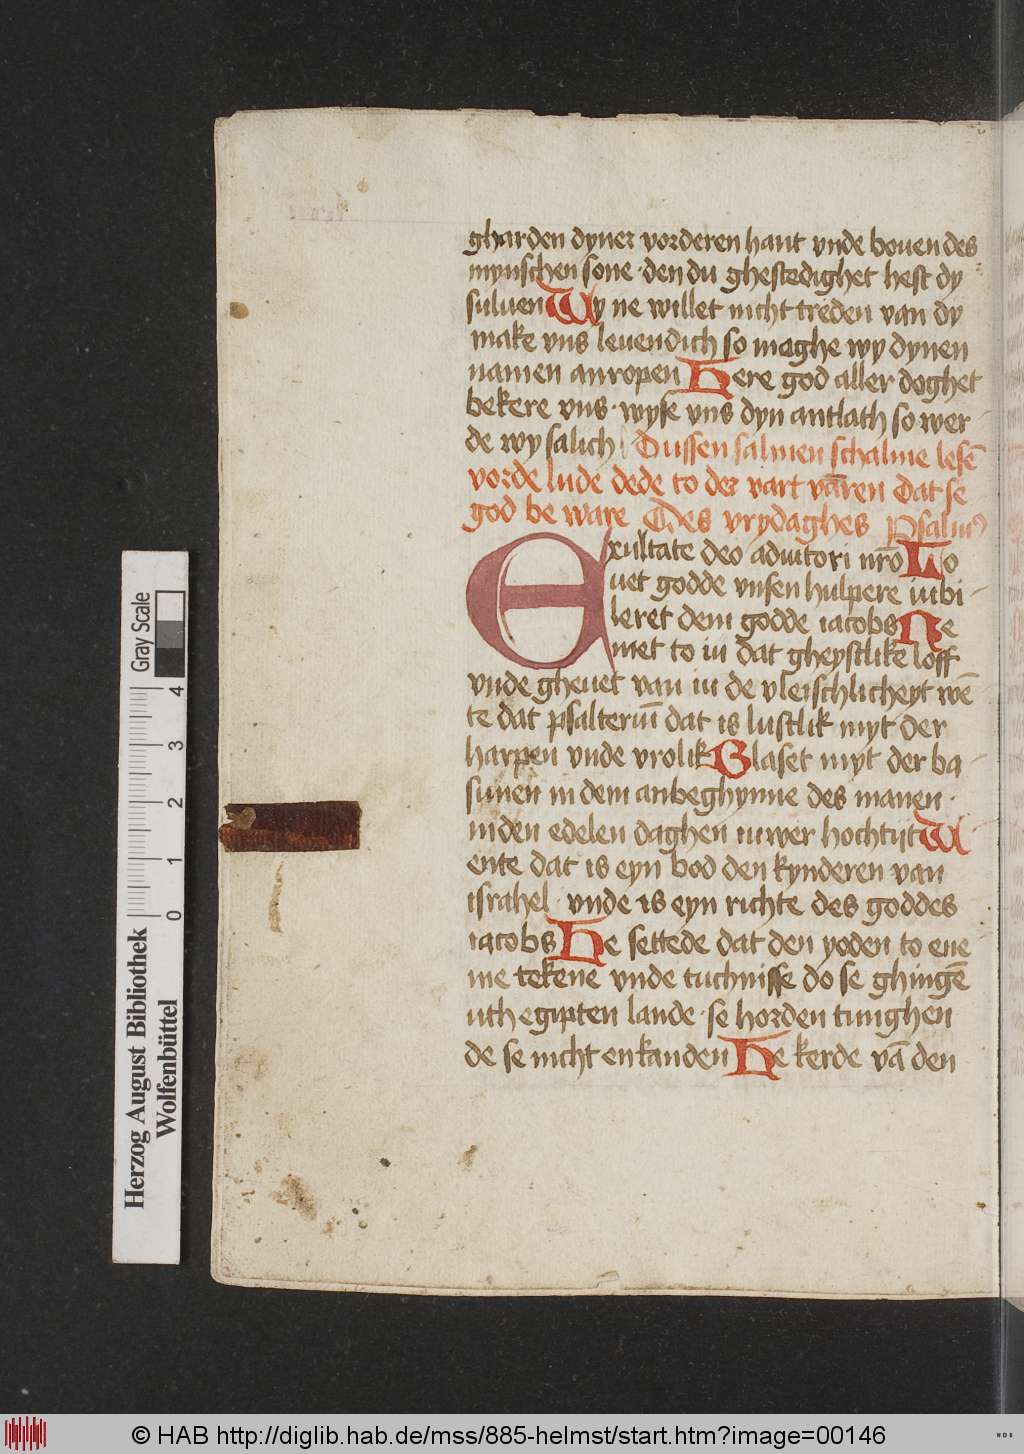 gharden dyner vorderen hant vnde bouen des
mynschen sone · den du ghestedighet hest dy
suluen Wy ne willet nicht treden van dy
make vns leuendich so moghe wy dynen
namen anropen Here god aller doghet
bekere vns · wyse vns dyn antlath so wer-
de wy salich Dussen salmen schalme lesē
vorde lude dede to der vart varen dat se
god be ware Des vrydaghes Psalmꝰ
Exultate deo adiutori nr̄o Lo
uet godde vnsen hulpere iubi-
leret dem godde iacobs Ne
met to iu dat gheystlike loff
vnde gheuet van iu de vleischlicheyt wē
te dat psalteriū dat is lustlik myt der
harpen vnde vrolik Blaset myt der ba-
sunen in dem anbeghynne des manen ·
in den edelen daghen iuwer hochtijt W
ente dat is eyn bod den kynderen van
israhel · vnde is eyn richte des goddes
iacobs He settede dat den yoden to ene
me tekene vnde tuchnisse do se ghingē
uth egipten lande · se horden tunghen
de se nicht enkanden He kerde vā den
Herzog August Bibliothek
Wolfenbüttel
Gray Scale
0 1 2 3 4
© HAB http://diglib.hab.de/mss/885-helmst/start.htm?image=00146